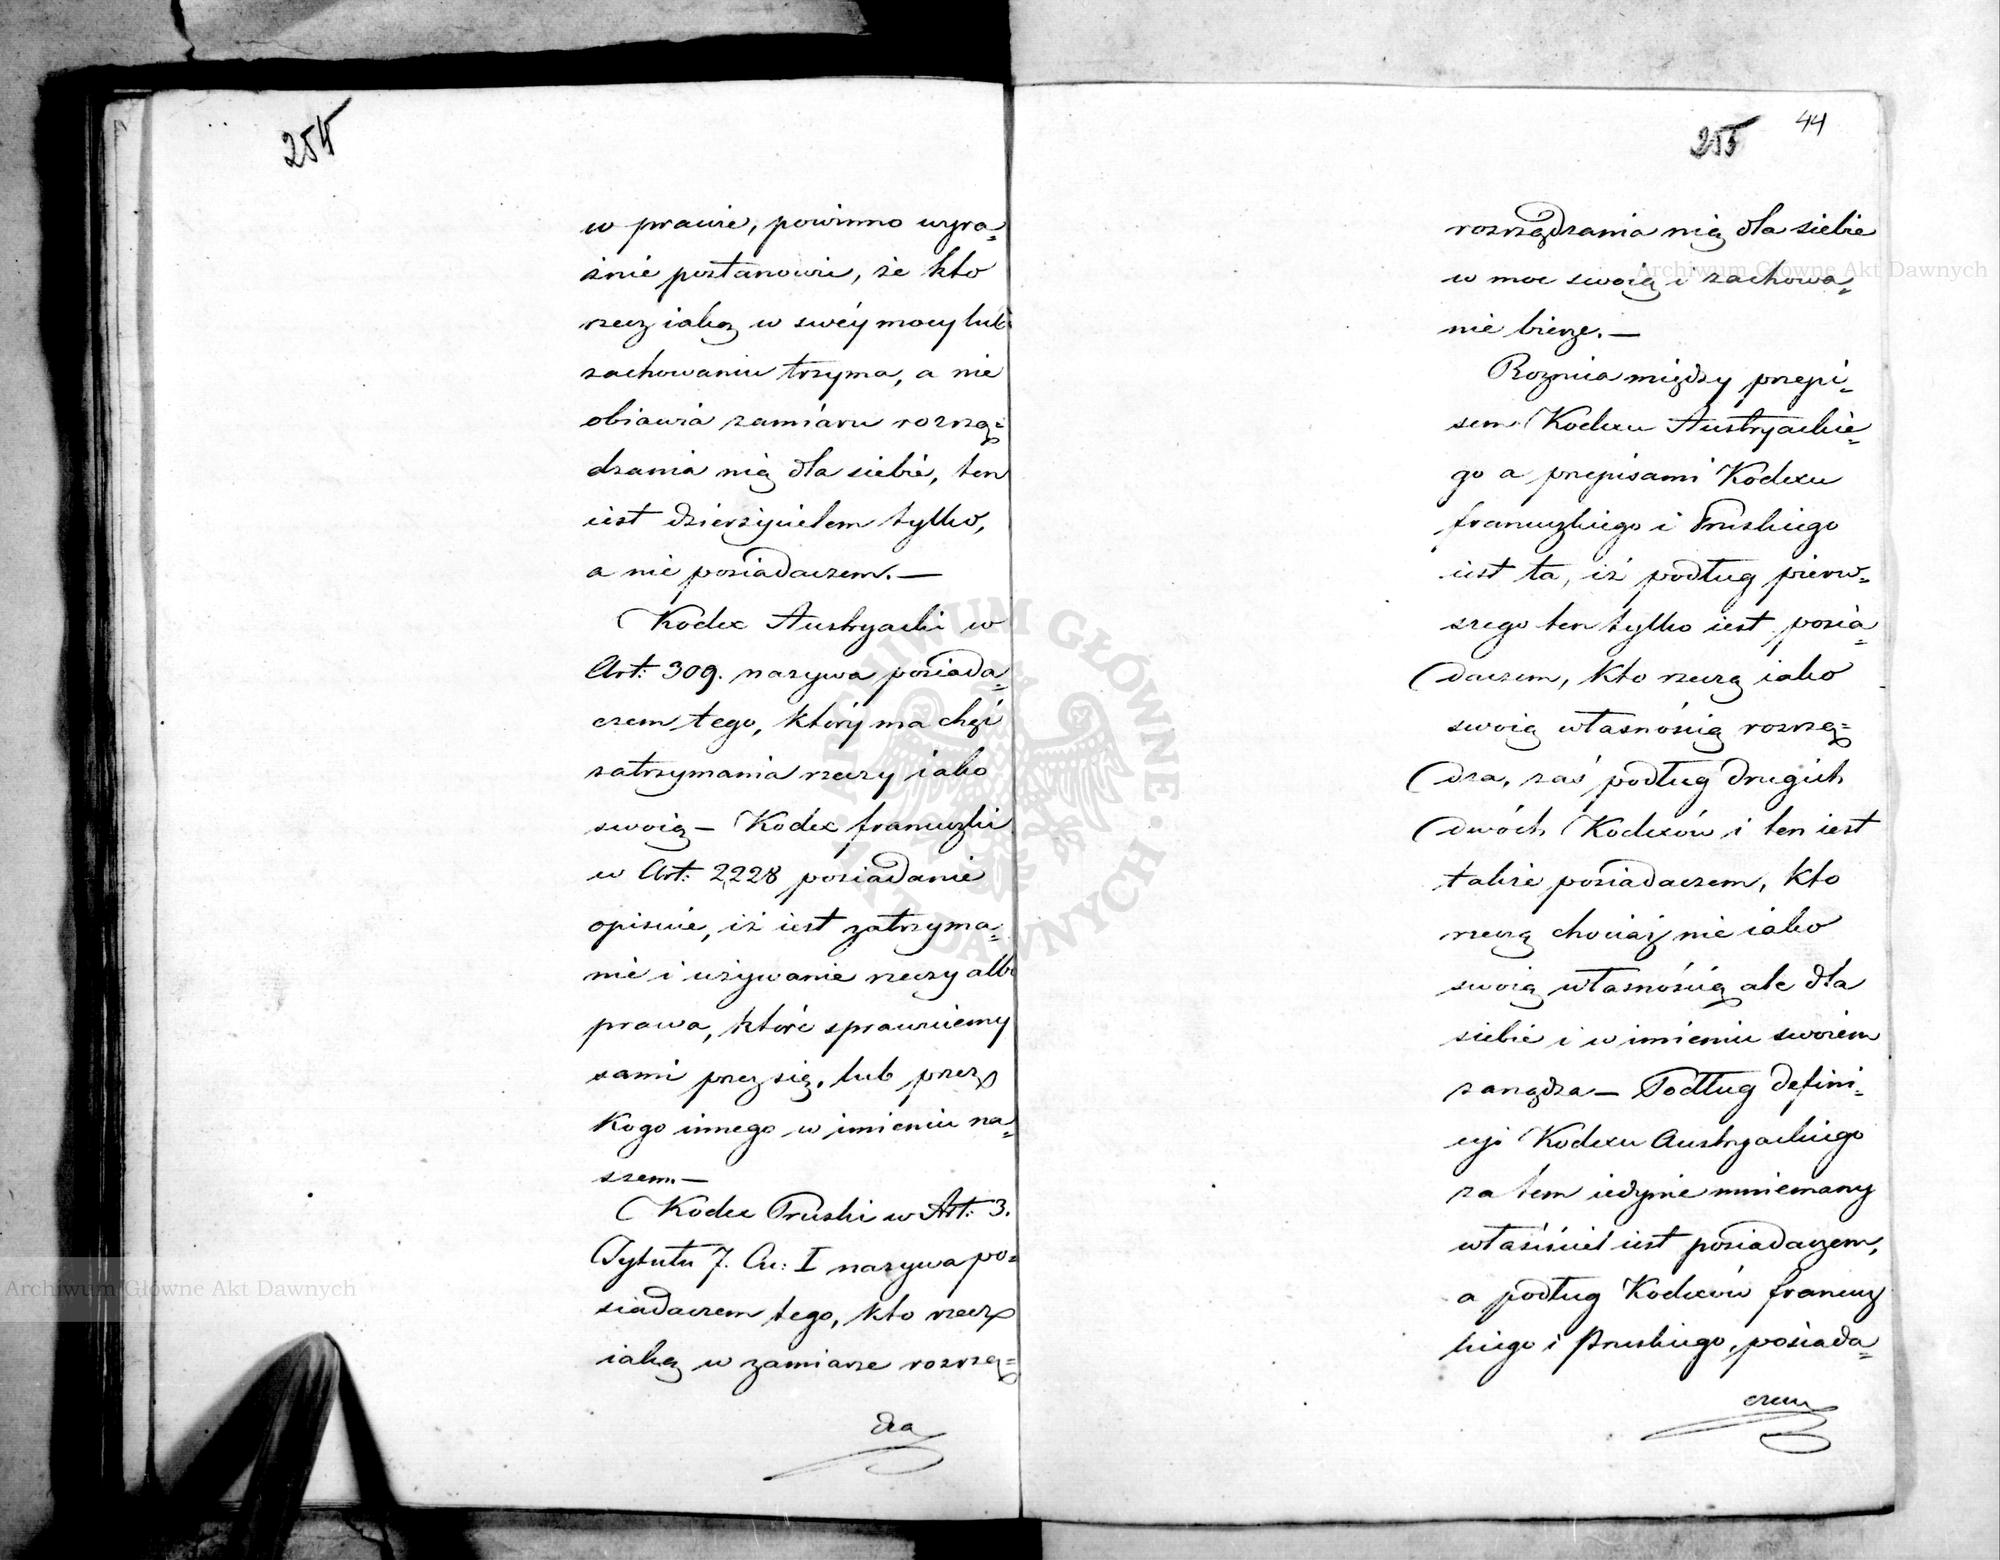 254
w prawie, powinno wyra=
źnie postanowić, że kto
rzecz iaką w swéy mocy lub
zachowaniu trzyma, a nie
obiawia zamiaru rozrzą=
dzania nią dla siebie, ten
iest dzierżycielem tylko,
a nie posiadaczem.—
Kodex Austryacki w
Art: 309. nazywa posiada=
czem tego, który ma chęć
zatrzymania rzeczy iako
swoią— Kodex francuzki
w Art: 2228 posiadanie
opisuie, iż iest zatrzyma=
nie i używanie rzeczy albo
prawa, które sprawuiemy
sami przez się, lub przez
kogo innego w imieniu na=
szem.—
Kodex Pruski w Art: 3.
Tytułu 7. Cz: I nazywa po=
siadaczem tego, kto rzecz
iaką w zamiarze rozrzą=
dza
255
44
rozrządzania nią dla siebie
w moc swoią i zachowa=
nie bierze.—
Roznica między przepi=
sem Kodexu Austryackie=
go a przepisami Kodexu
francuzkiego i Pruskiego
iest ta, iż podług pierw=
szego ten tylko iest posia=
daczem, kto rzeczą iako
swoią własnością rozrzą=
dza, zaś podług drugich
dwóch Kodexów i ten iest
także posiadaczem, kto
rzeczą chociaż nie iako
swoią własnością ale dla
siebie i w imieniu swoiem
zarządza— Podług defini=
cyi Kodexu Austryackiego
zatem iedynie mniemany
właściciel iest posiadaczem,
a podług Kodexów francuz
kiego i Pruskiego, posiada=
czem
Archiwum Główne Akt Dawnych
Archiwum Główne Akt Dawnych
ARCHIWUM GŁÓWNE · AKT DAWNYCH ·